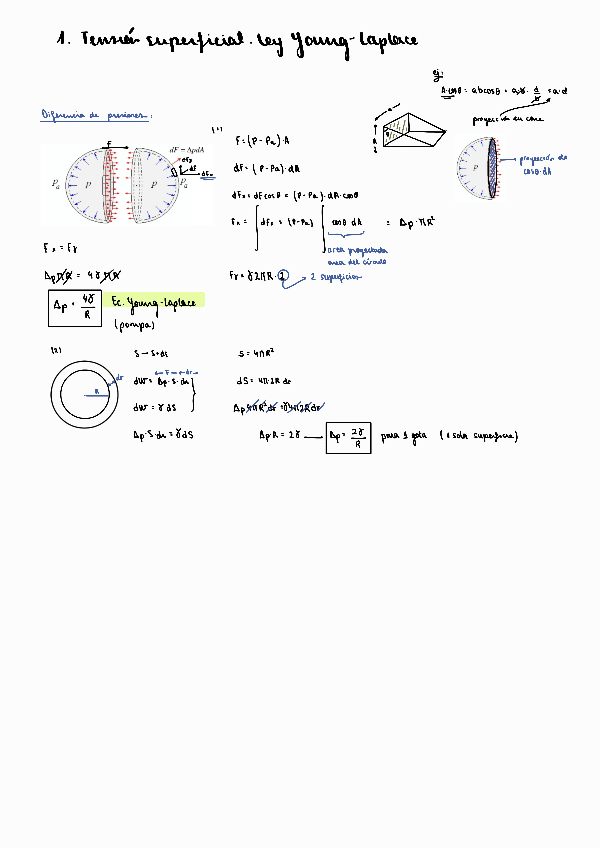 1. Tensión superficial. Ley Young-Laplace
ej:
A·cosθ = a·b cosθ = a·b · d/b = a·d
proyección en cara
Diferencia de presiones:
(1)
F = (P - Pa)·A
dF = ΔpdA
dF = (P - Pa)·dA
Pa p p Pa
proyección de
cosθ·dA
dFx = dF cosθ = (P - Pa)·dA·cosθ
Fx = ∫ dFx = (P - Pa) ∫ cosθ dA = Δp·πR²
área proyectada
área del círculo
Fx = Fγ
Δp πR² = 4γ πR
Fγ = γ 2πR · 2 → 2 superficies
Δp = 4γ/R Ec. Young-Laplace
(pompa)
(2)
S → S+ds
S = 4πR²
R
dr
← F → ←dr→
dW = Δp·S·dr
dS = 4π·2R dr
dW = γ dS
Δp 4πR² dr = γ 4π 2R dr
Δp·S·dr = γ dS
Δp·R = 2γ → Δp = 2γ/R para 1 gota (1 sola superficie)